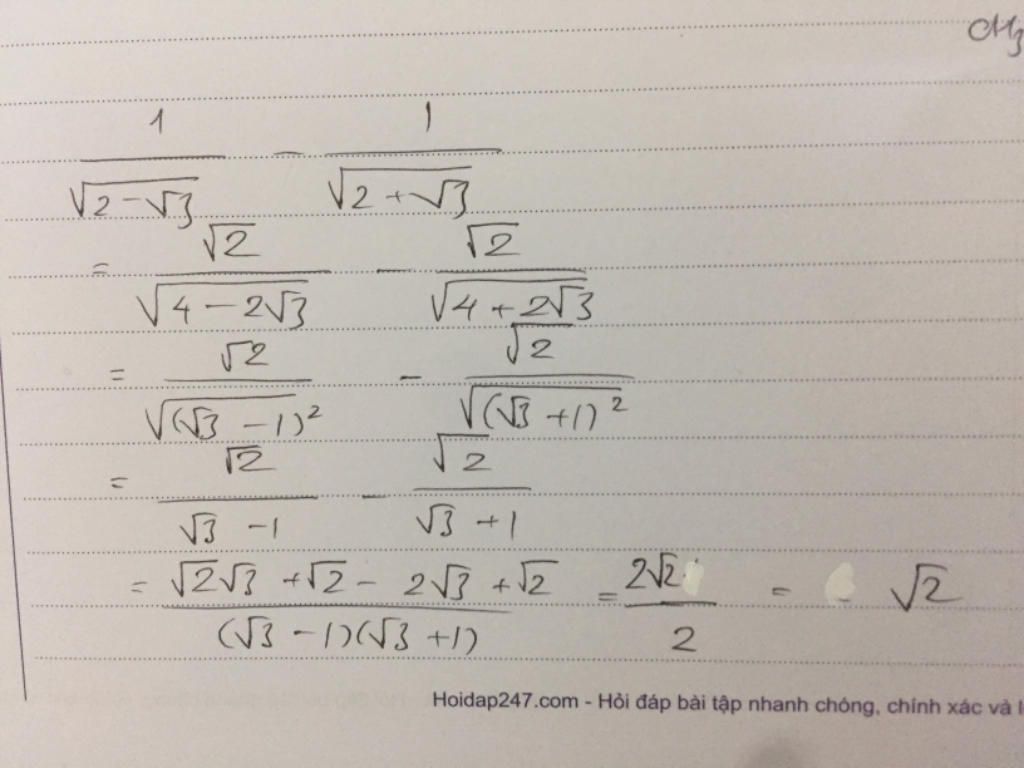 M3
1/√(2-√3) - 1/√(2+√3)
= √2/√(4-2√3) - √2/√(4+2√3)
= √2/√((√3-1)²) - √2/√((√3+1)²)
= √2/(√3-1) - √2/(√3+1)
= (√2√3+√2-2√3+√2)/((√3-1)(√3+1)) = 2√2/2 = √2
Hoidap247.com - Hỏi đáp bài tập nhanh chóng, chính xác và